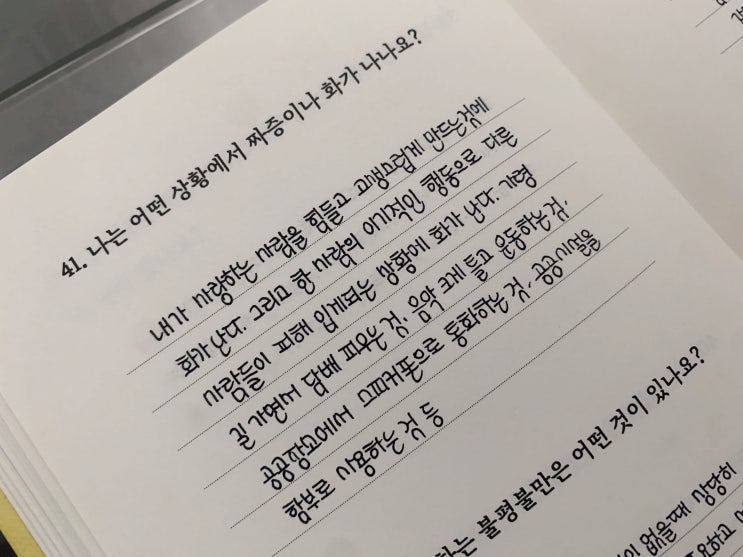 41. 나는 어떤 상황에서 짜증이나 화가 나나요?
내가 사랑하는 사람을 힘들고 고생스럽게 만드는것에
화가 난다. 그리고 한 사람의 이기적인 행동으로 다른
사람들이 피해 입게되는 상황에 화가 난다. 가령
길 가면서 담배 피우는 것, 음악 크게 틀고 운동하는 것,
공공장소에서 스피커폰으로 통화하는 것, 공공시설을
함부로 사용하는 것 등
하는 불평불만은 어떤 것이 있나요?
없을때 상당히